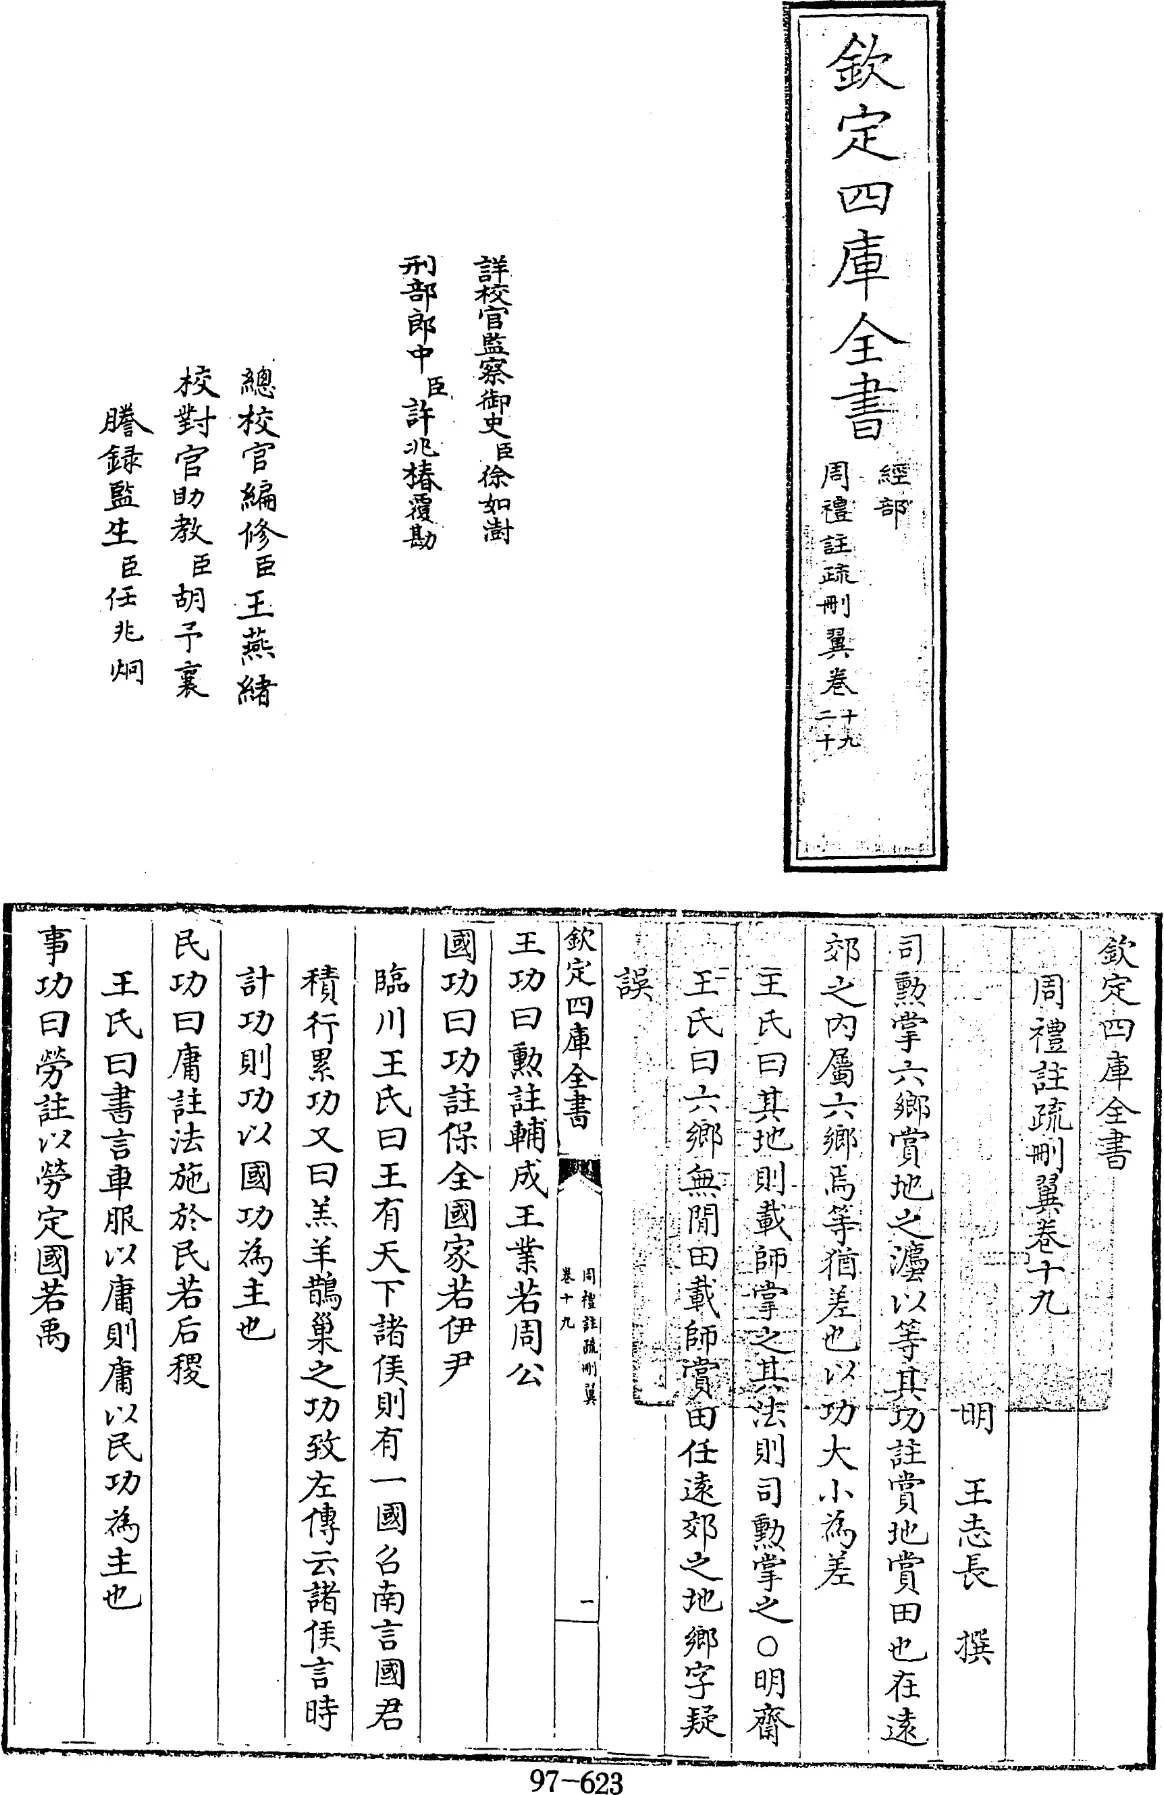 欽定四庫全書
經部
周禮註疏刪翼卷十九
二十
詳校官監察御史臣徐如澍
刑部郎中臣許兆椿覆勘
總校官編修臣王燕緒
校對官助教臣胡予襄
謄録監生臣任兆炯
欽定四庫全書
周禮註疏刪翼卷十九
明 王志長 撰
司勲掌六鄉賞地之灋以等其功註賞地賞田也在逺
郊之内屬六鄉焉等猶差也以功大小為差
王氏曰其地則載師掌之其法則司勲掌之○明齋
王氏曰六鄉無閒田載師賞田任逺郊之地鄉字疑
誤
欽定四庫全書
周禮註疏刪翼
卷十九
一
王功曰勲註輔成王業若周公
國功曰功註保全國家若伊尹
臨川王氏曰王有天下諸侯則有一國召南言國君
積行累功又曰羔羊鵲巢之功致左傳云諸侯言時
計功則功以國功為主也
民功曰庸註法施於民若后稷
王氏曰書言車服以庸則庸以民功為主也
事功曰勞註以勞定國若禹
97-623